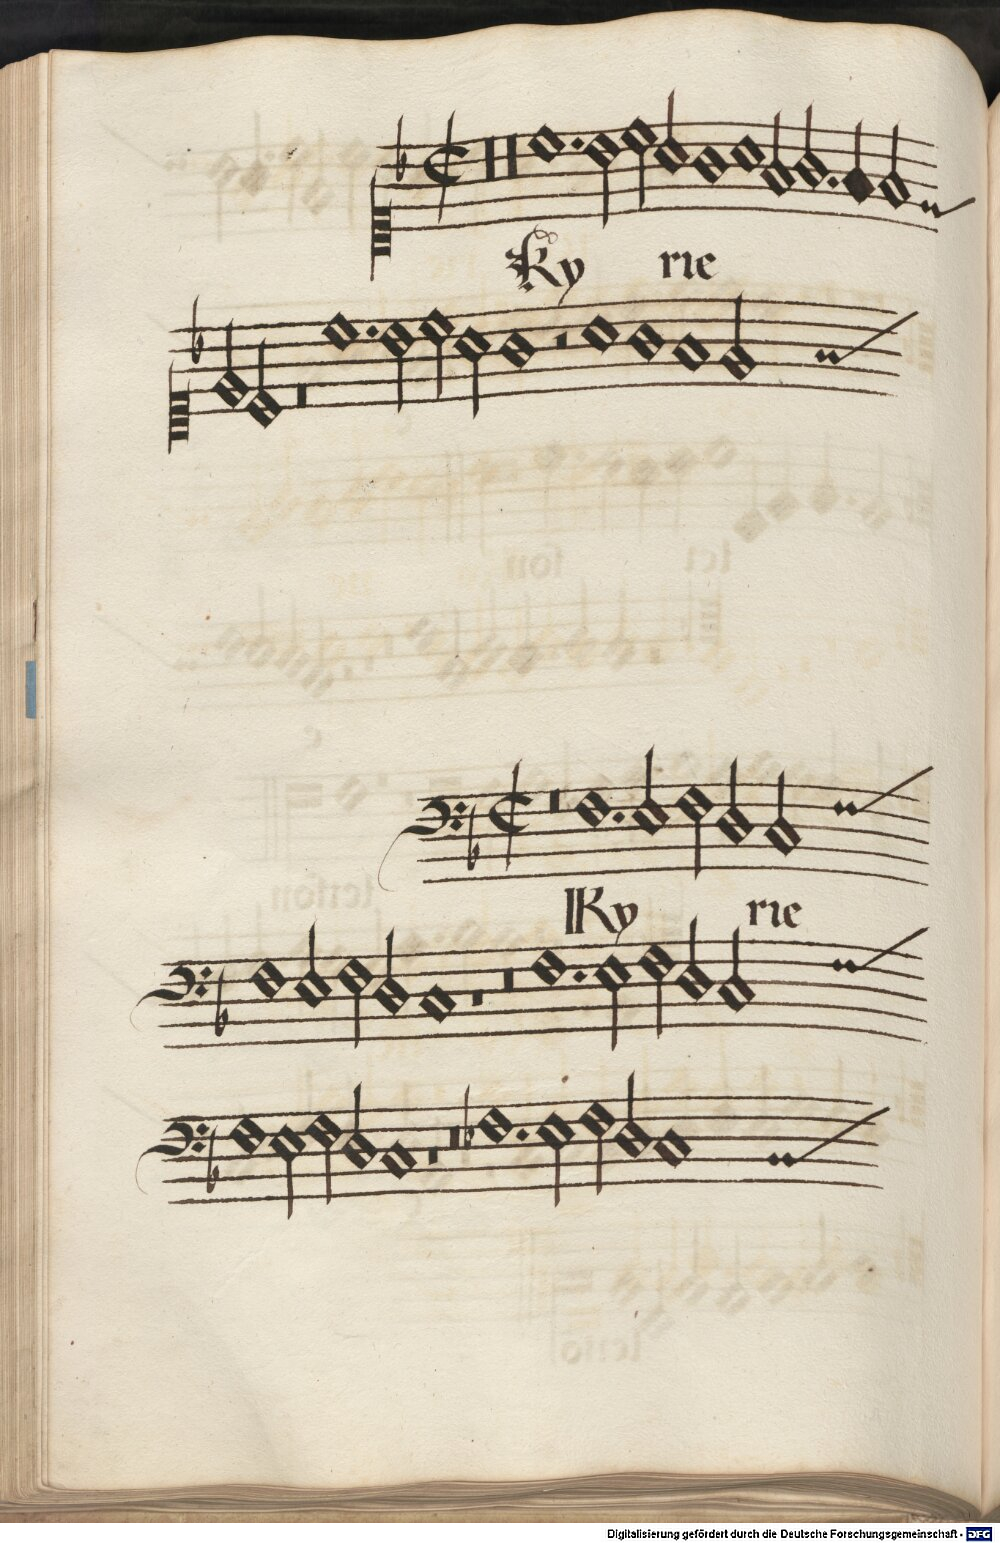 Ky rie
Ky rie
Digitalisierung gefördert durch die Deutsche Forschungsgemeinschaft - DFG